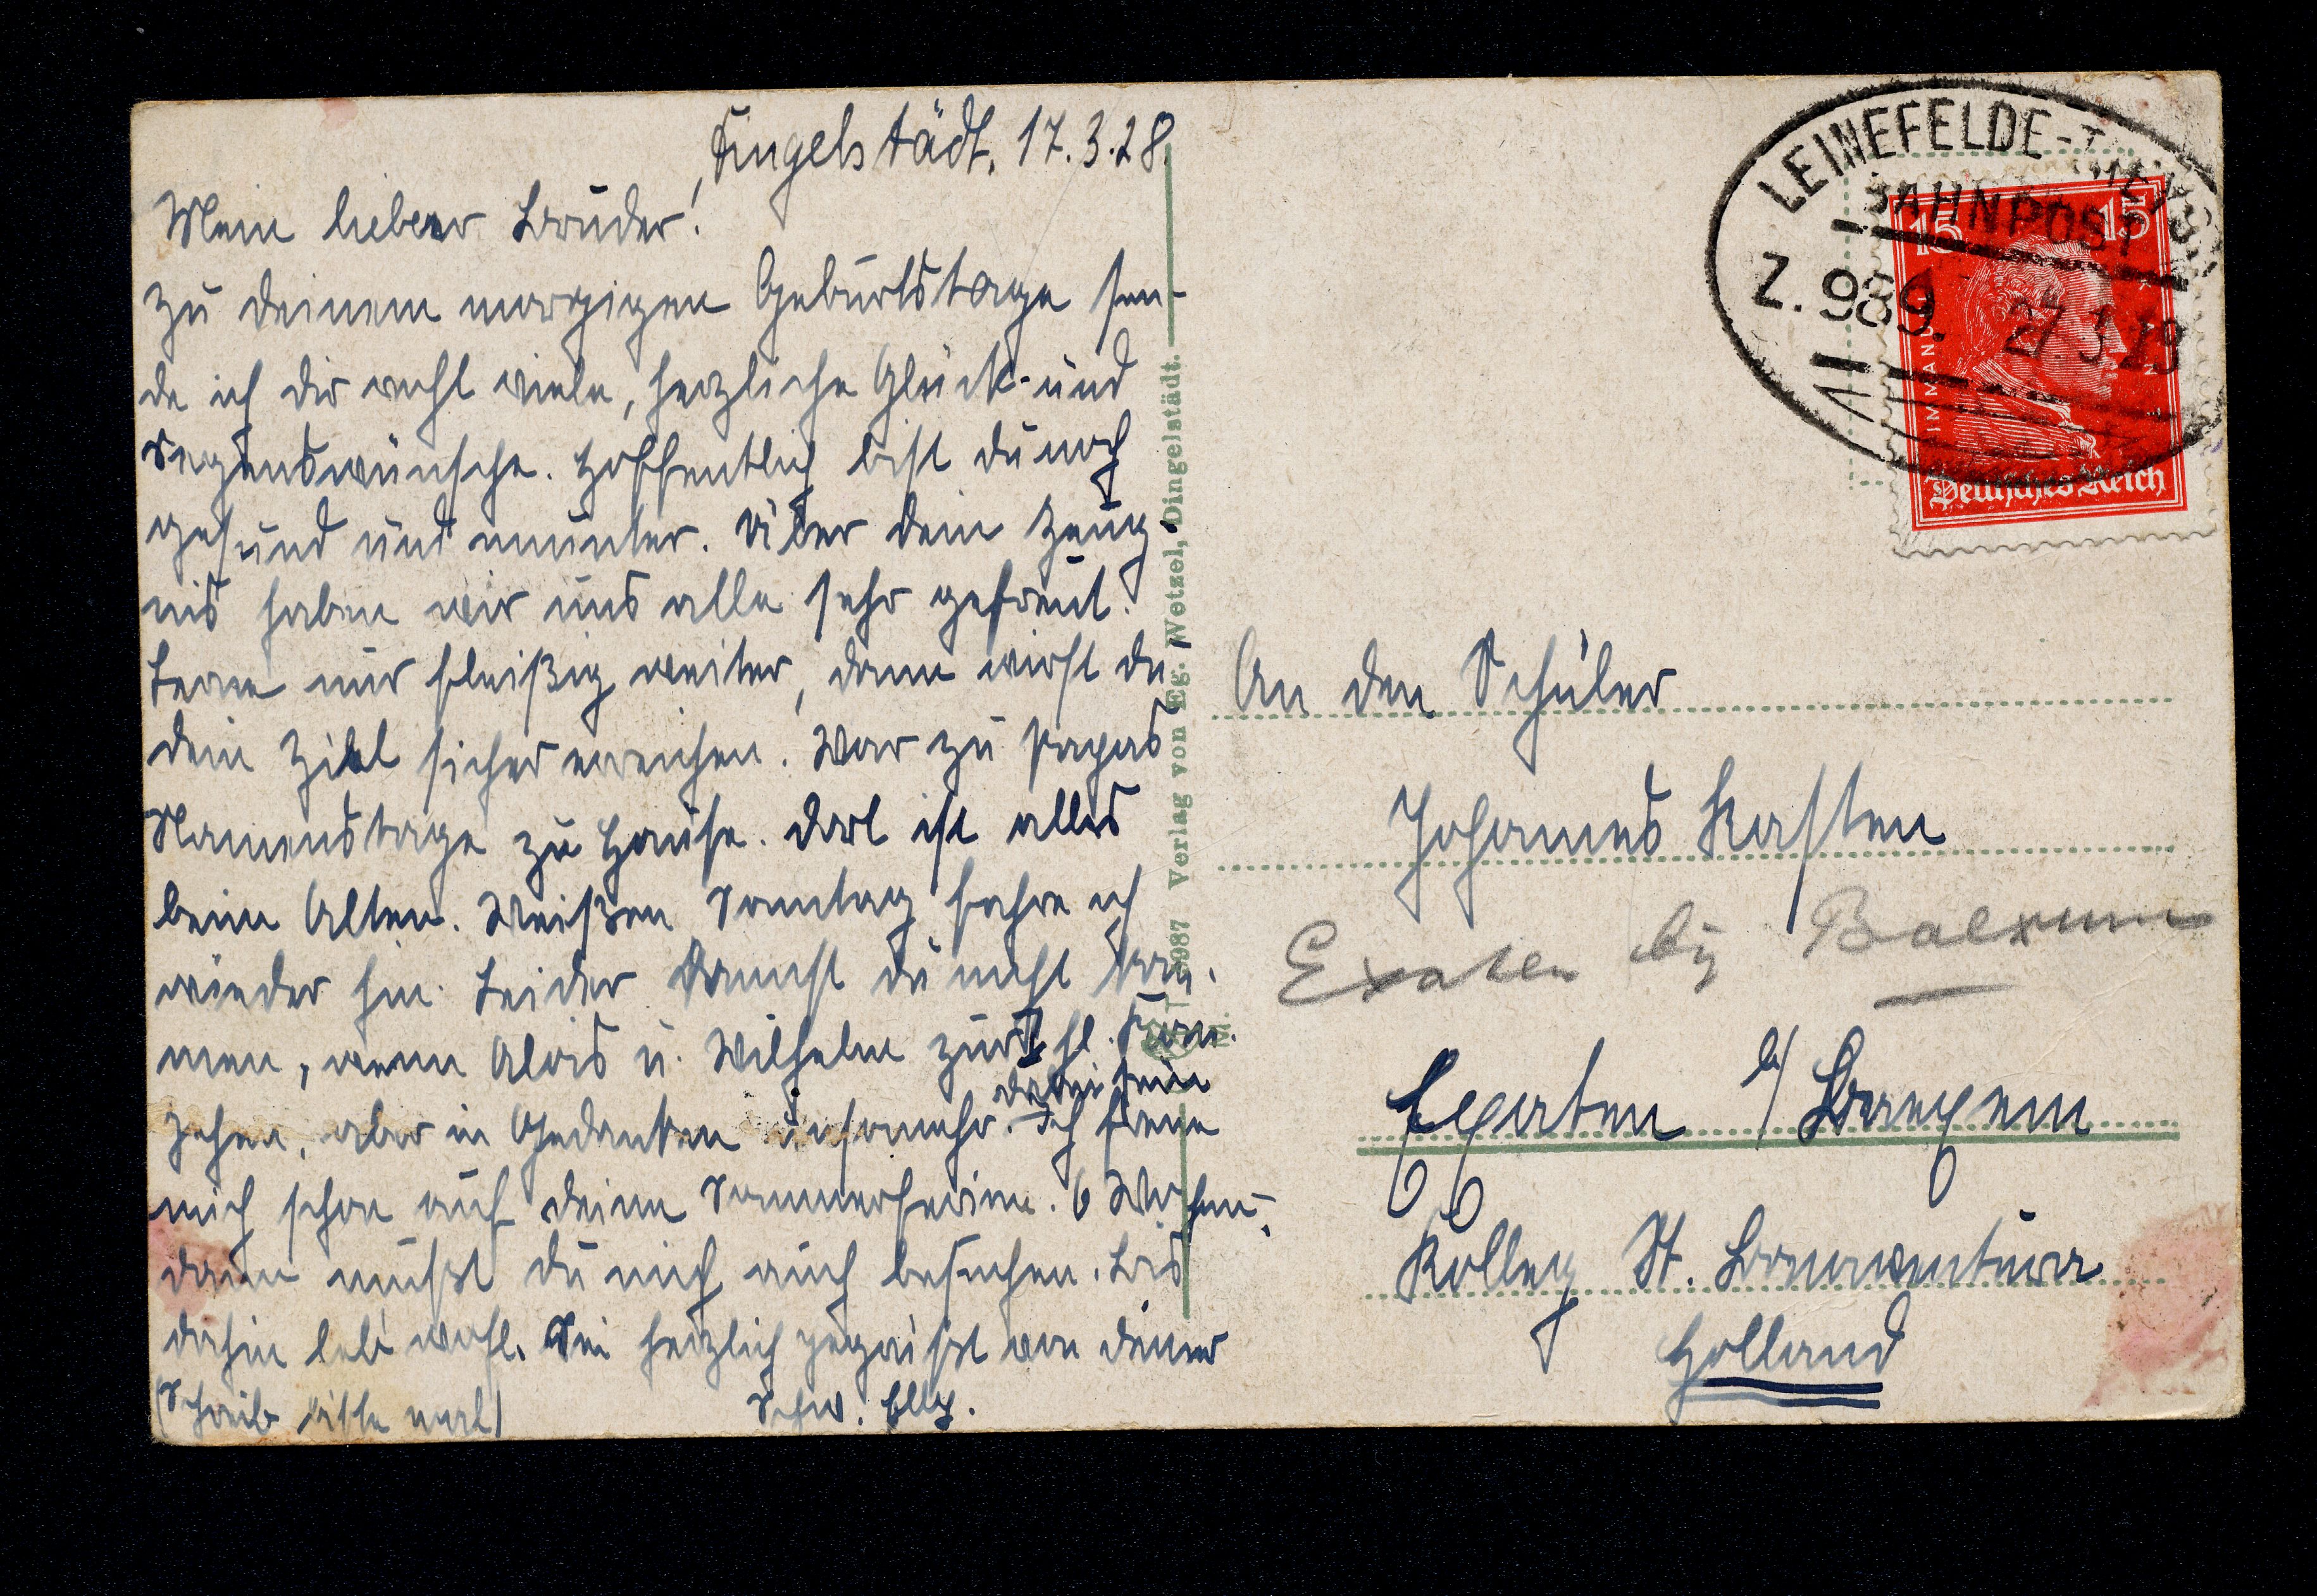 Dingelstädt, 17.3.28.
Mein lieber Bruder!
Zu deinem morgigen Geburtstage sen-
de ich dir recht viele, herzliche Glück- und
Segenswünsche. Hoffentlich bist du noch
gesund und munter. Über dein Zeug-
nis haben wir uns alle sehr gefreut.
Lerne nur fleißig weiter, dann wirst du
dein Ziel sicher erreichen. War zu Papas
Namenstage zu Hause. Dort ist alles
beim Alten. Weißen Sonntag fahre ich
wieder hin. Leider kannst du nicht kom-
men, wenn Alois u. Wilhelm zur hl. Kom.
dabei sein
gehen, aber in Gedanken umsomehr. Ich freue
mich schon auf deine Sommerferien. 6 Wochen,
dann mußt du mich auch besuchen. Bis
dahin leb wohl. Sei herzlich gegrüßt von deiner
(Schreib bitte mal) Schw. Elly.
Verlag von Eg. Wetzel, Dingelstädt.
LEINEFELDE-
BAHNPOST
Z. 989.
15 15
IMMAN
Deutsches Reich
An den Schüler
Johannes Kasten
Exaten bij Baexum
Exaten b/ Baexem
Kolleg St. Bonaventura
Holland